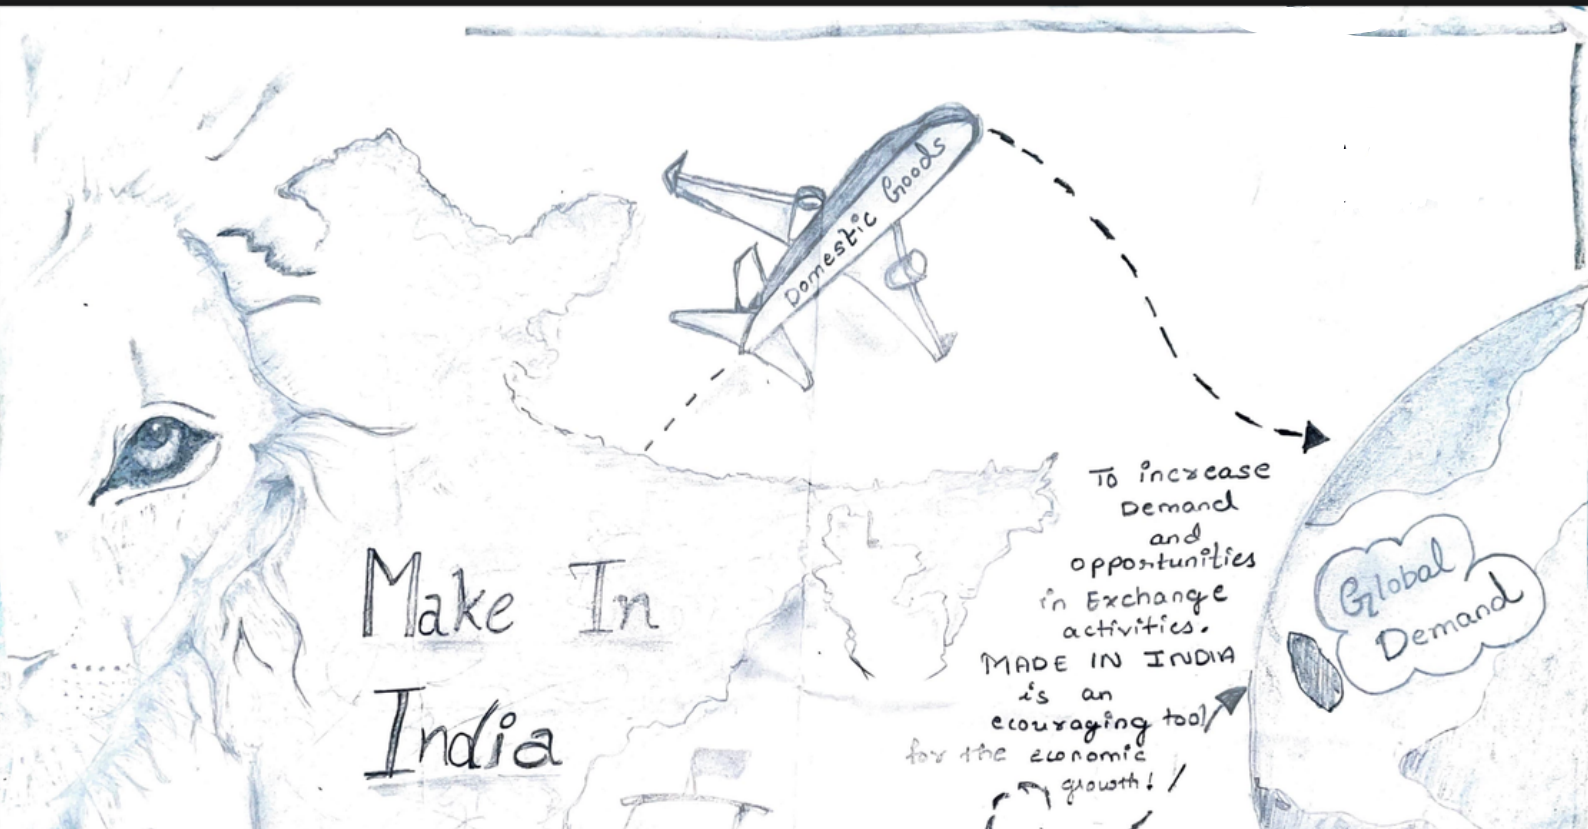 Domestic Goods
To increase
Demand
and
opportunities
in Exchange
activities.
MADE IN INDIA
is an
ecouraging tool
for the economic
growth!
Global
Demand
Make In
India